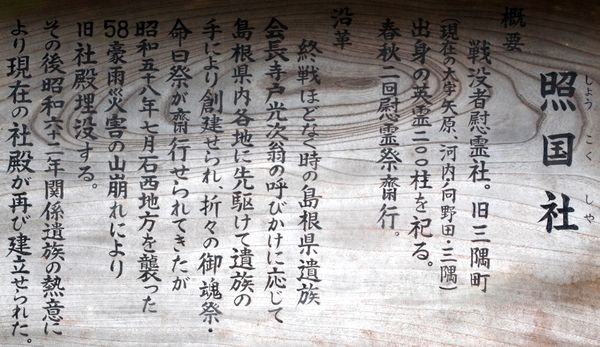 照国社
しょうこくしゃ
概要
戦没者慰霊社。旧三隅町
(現在の大字矢原、河内、向野田・三隅)
出身の英霊二〇〇柱を祀る。
春秋二回慰霊祭齋行。
沿革
終戦ほどなく時の島根県遺族
会長寺戸光次翁の呼びかけに応じて
島根県内各地に先駆けて遺族の
手により創建せられ、折々の御魂祭・
命日祭が齋行せられてきたが
昭和五十八年七月石西地方を襲った
58豪雨災害の山崩れにより
旧社殿埋没する。
その後昭和六十二年関係遺族の熱意に
より現在の社殿が再び建立せられた。